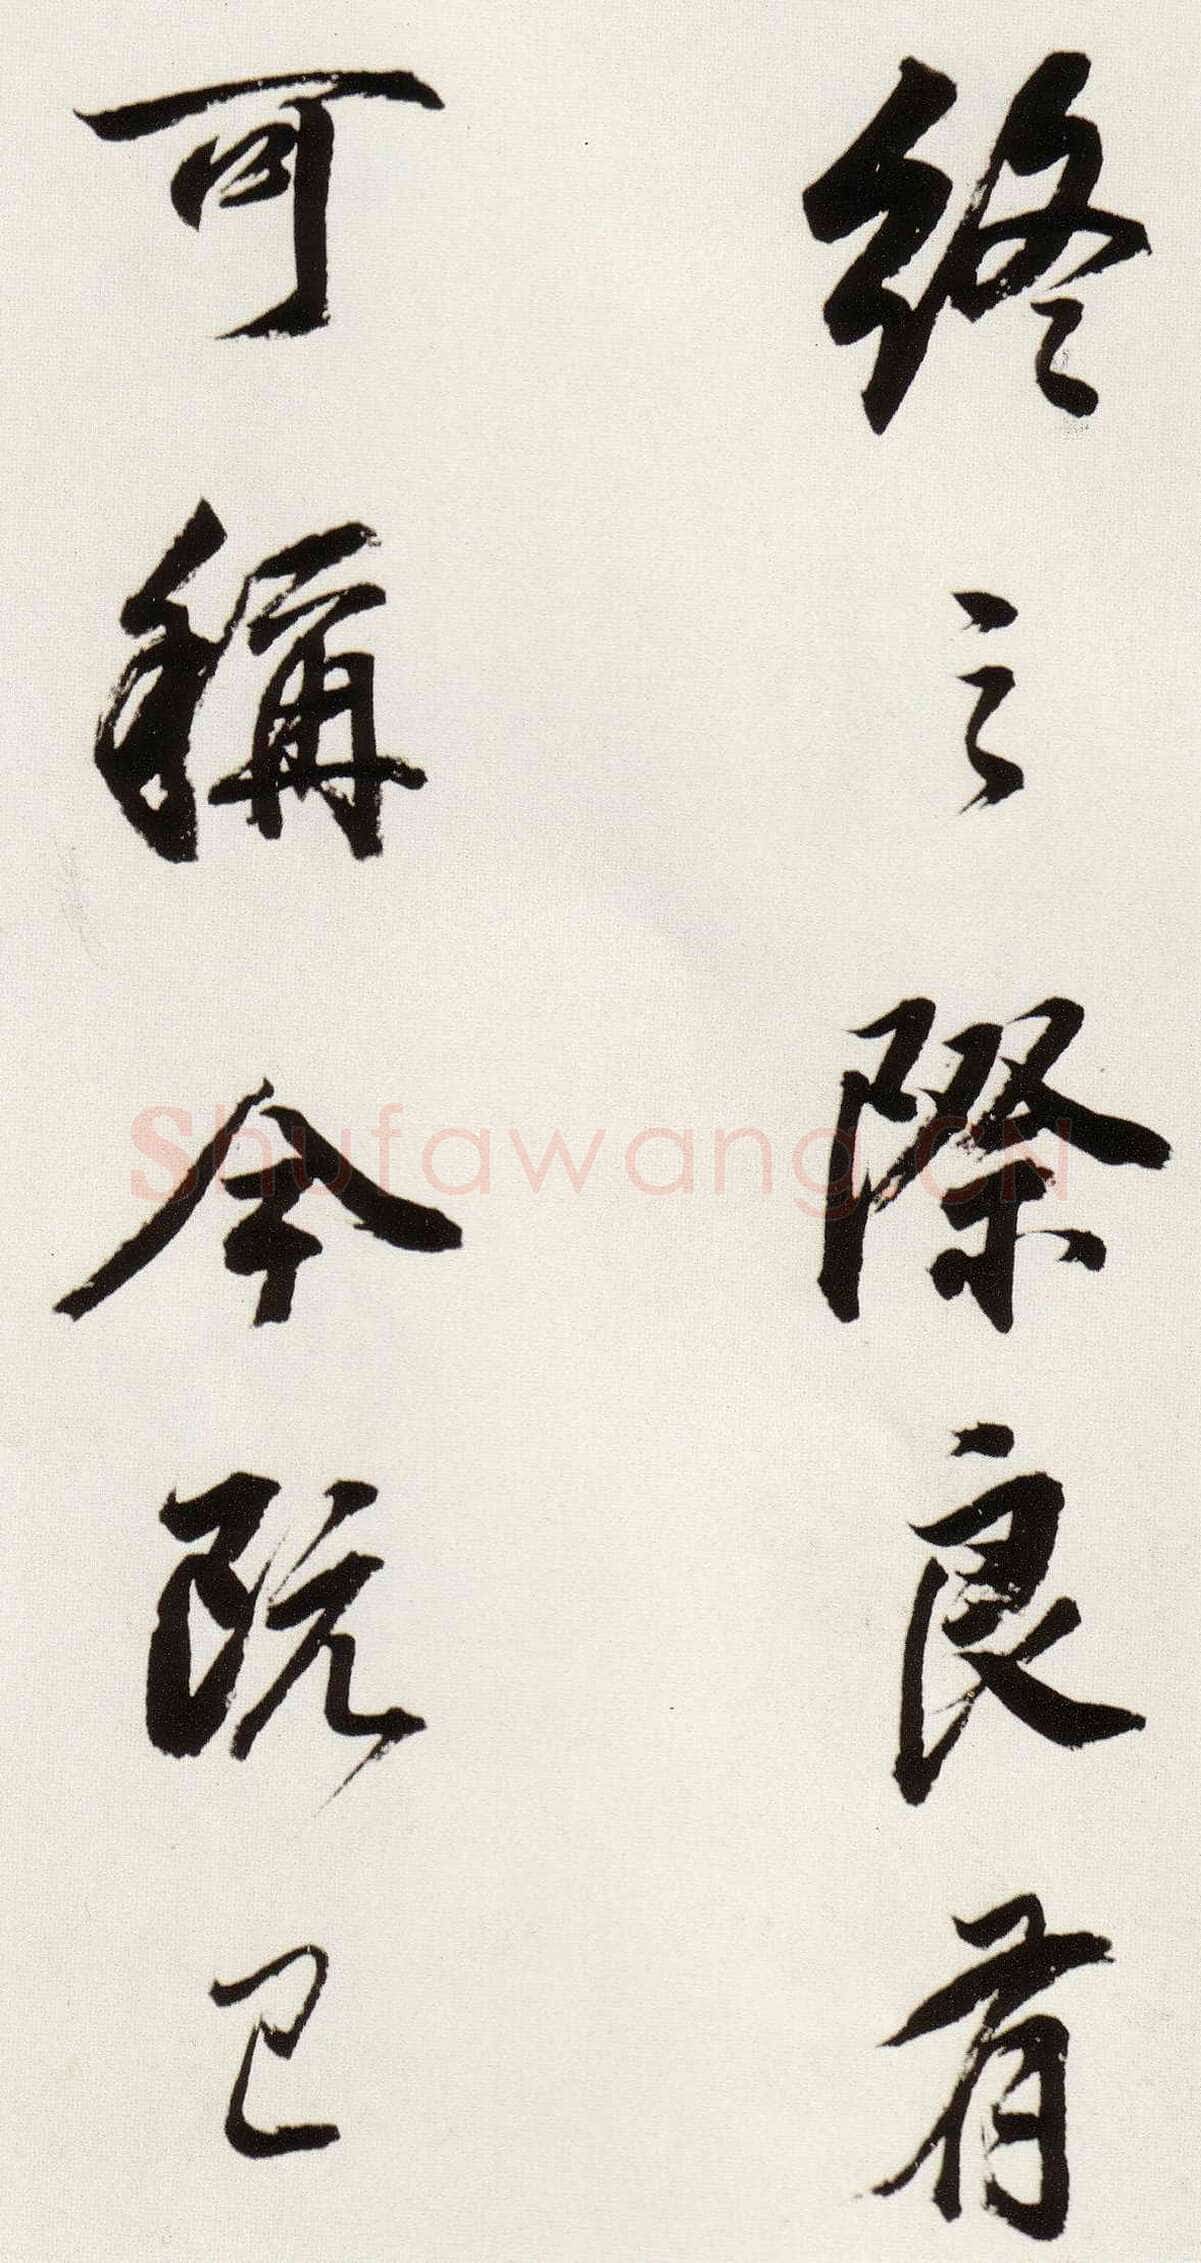 終之際良有
可稱今既已
Shufawang.CN